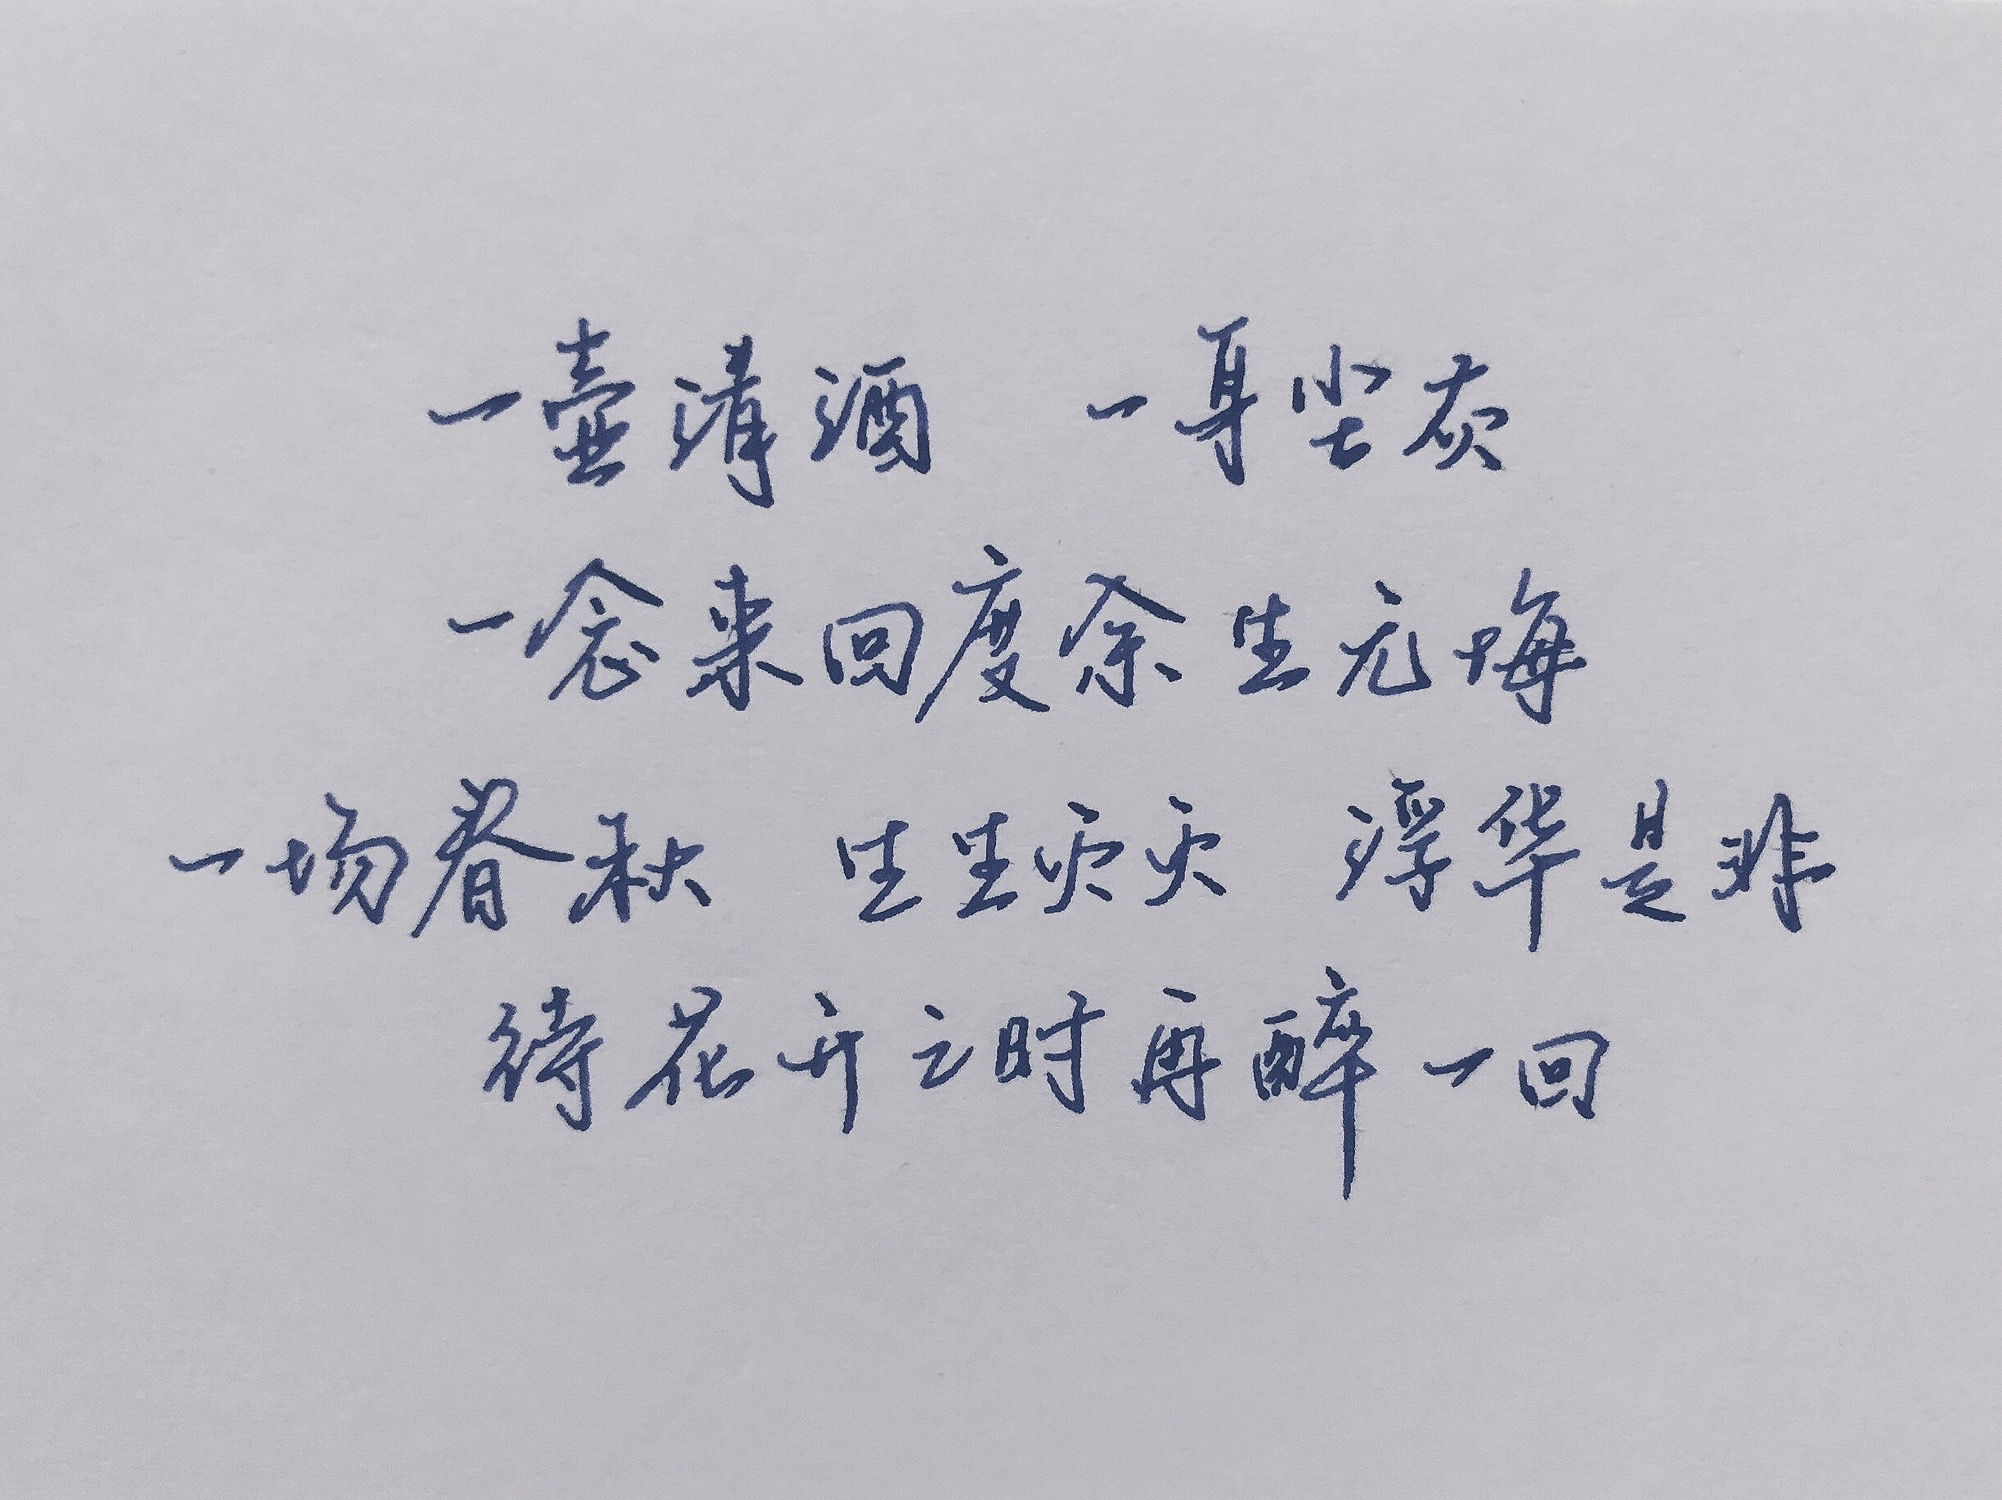 一壶清酒 一身尘灰
一念来回度余生无悔
一场春秋 生生灭灭 浮华是非
待花开之时再醉一回